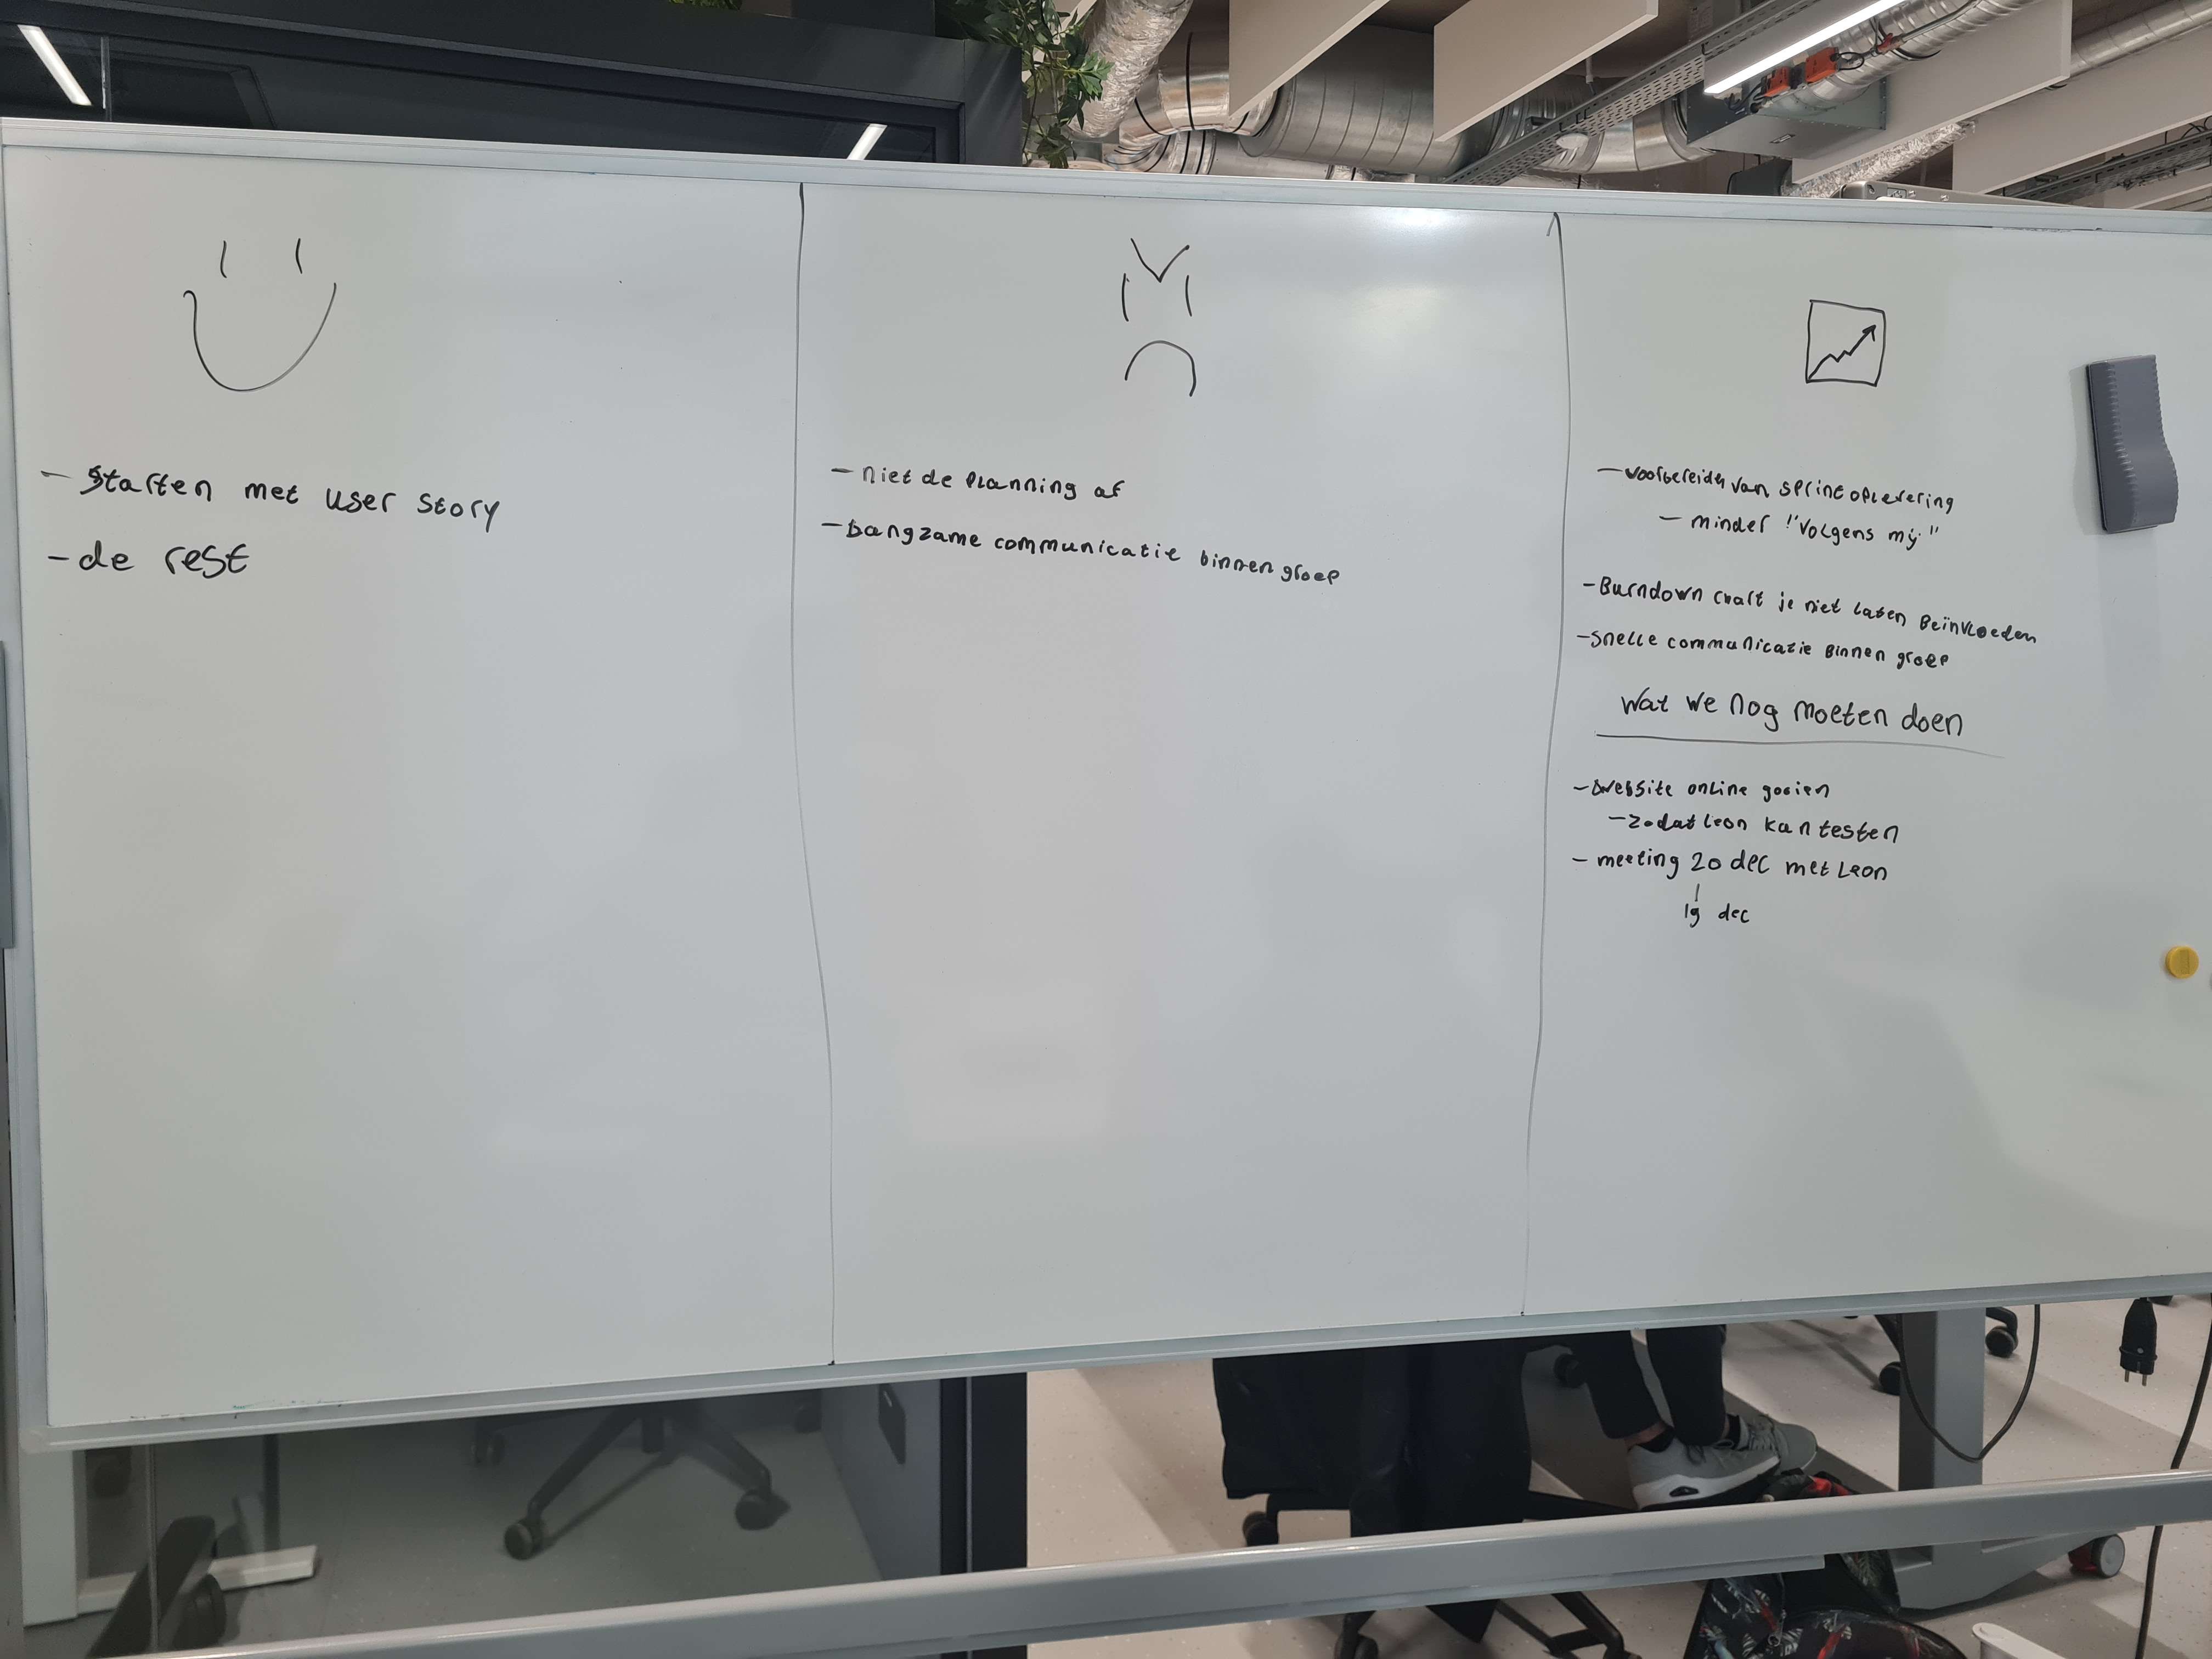 - Starten met user story
- de rest
- niet de planning af
- langzame communicatie binnen groep
- voorbereiden van sprint oplevering
- minder "volgens mij"
- Burndown chart je niet laten beïnvloeden
- snelle communicatie binnen groep
Wat we nog moeten doen
- website online gooien
- zodat leon kan testen
- meeting 20 dec met Leon
19 dec